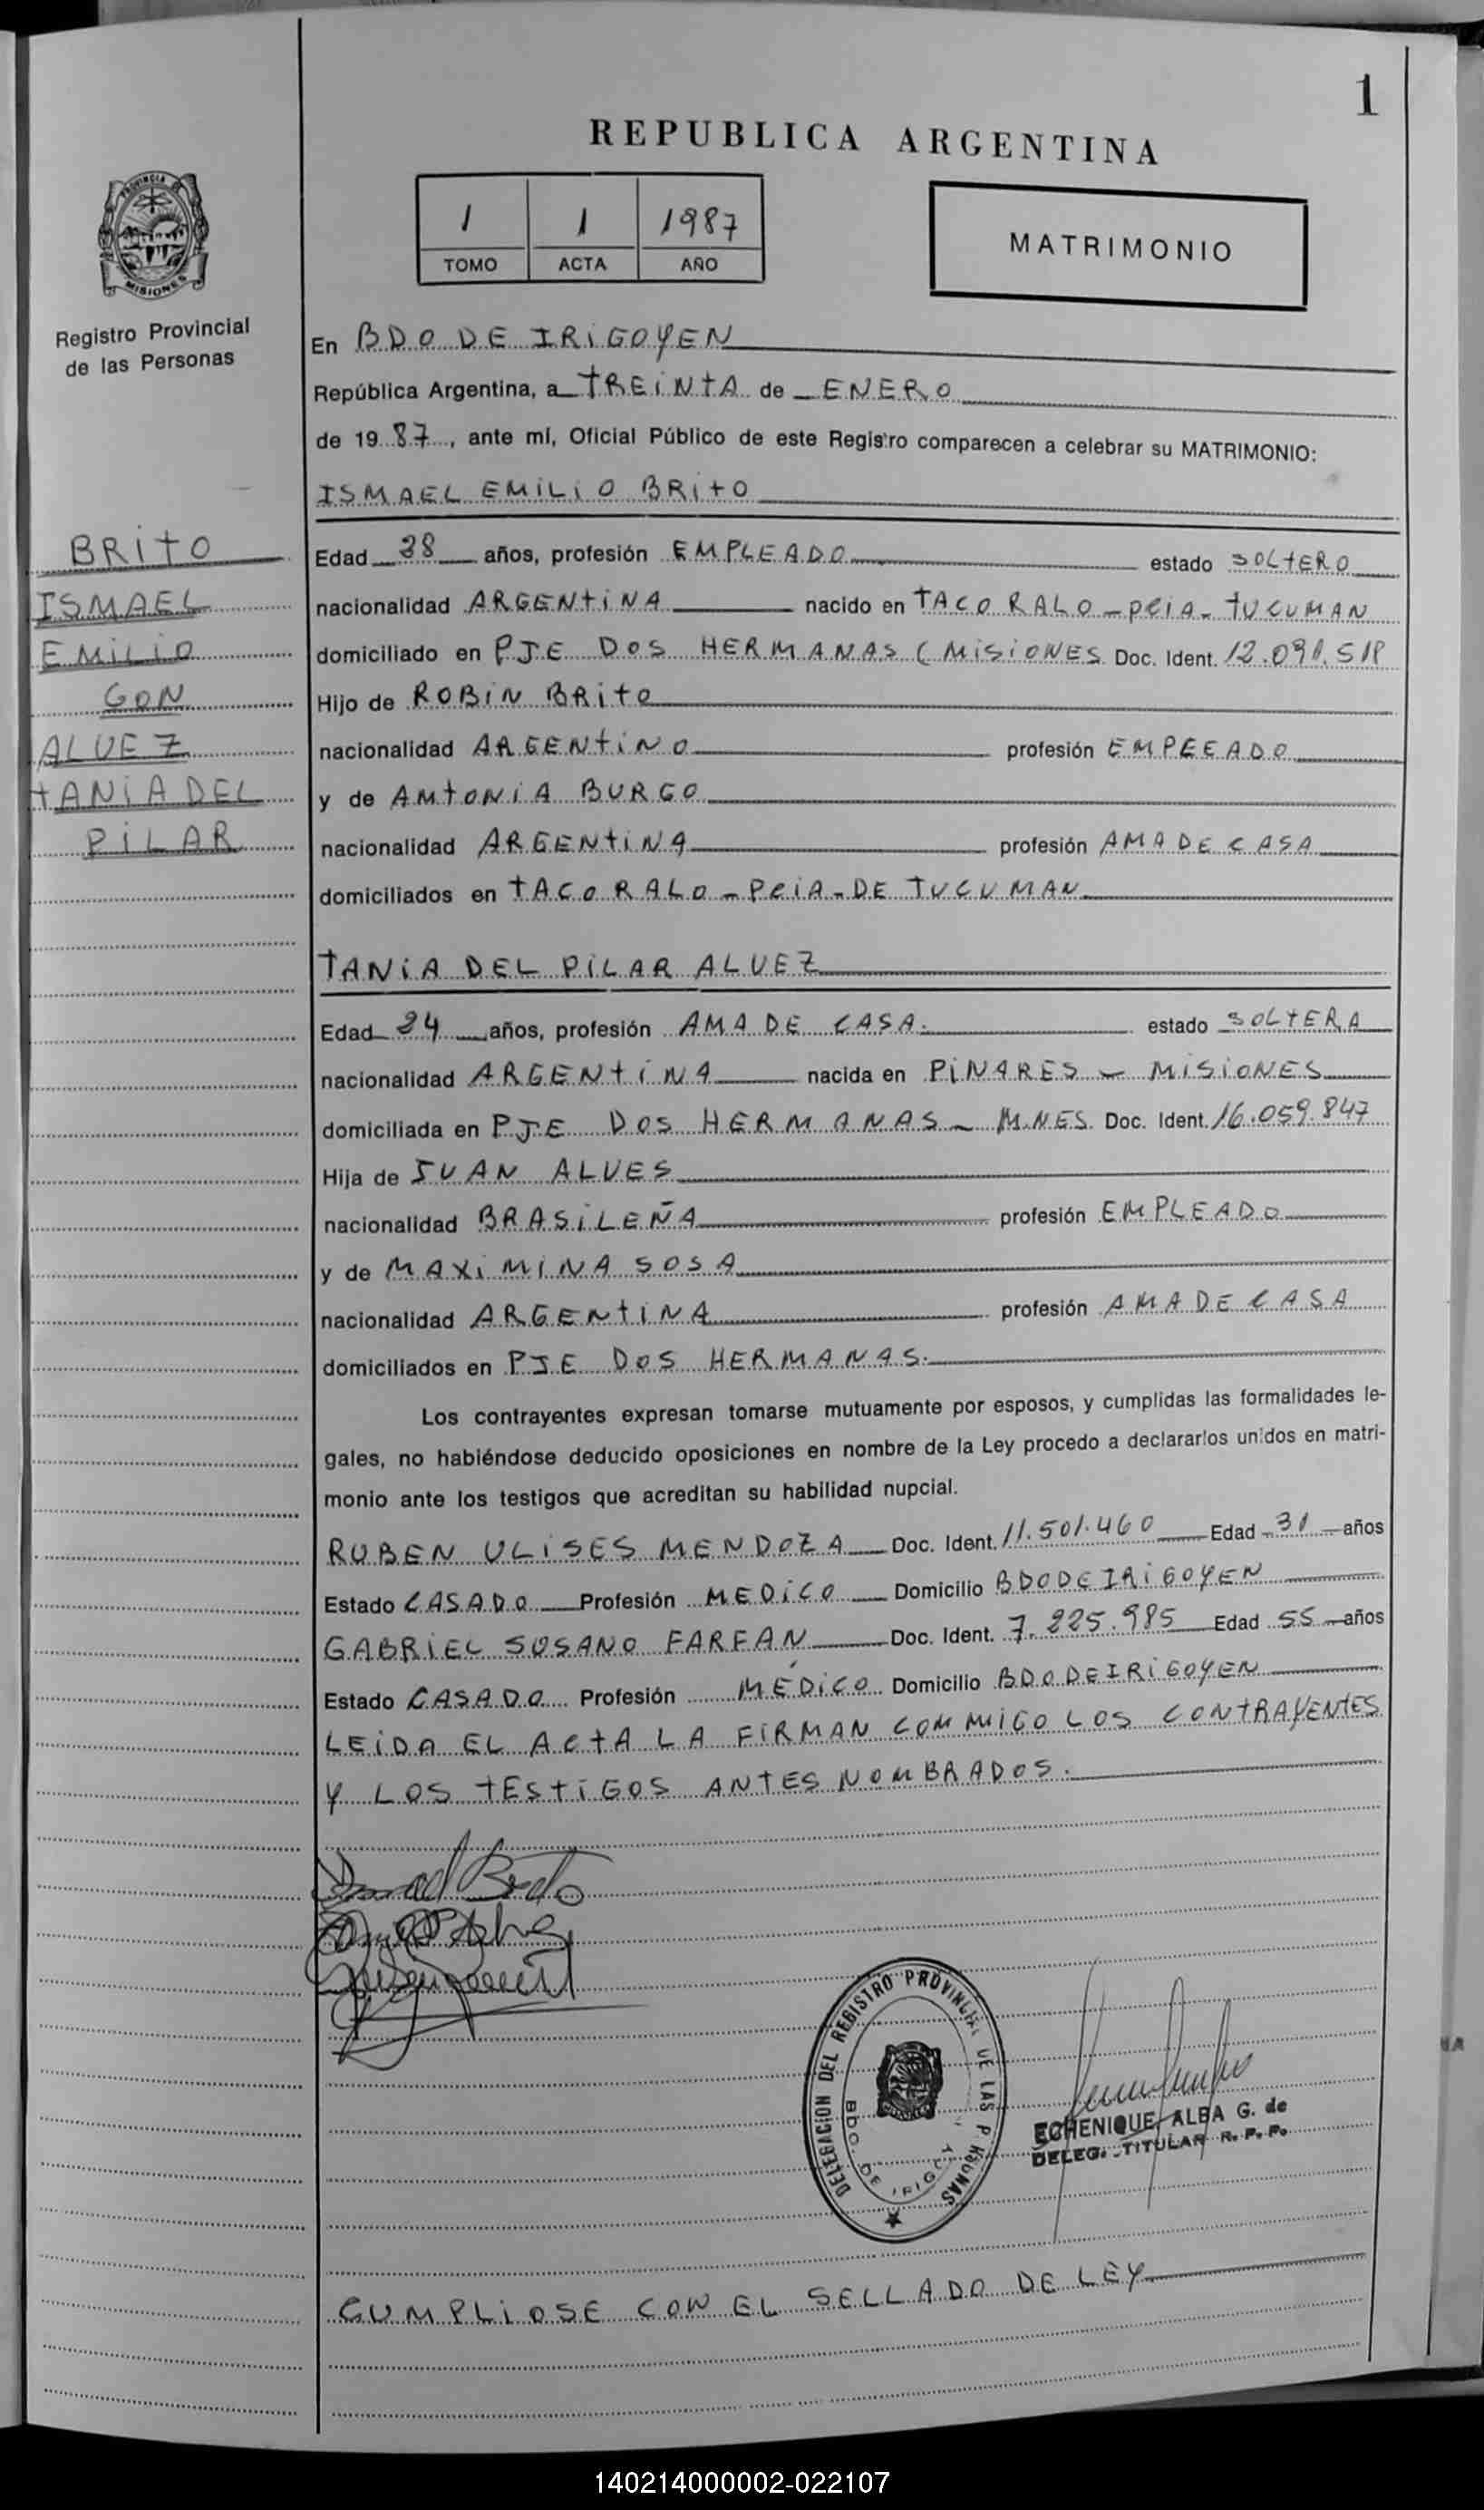 1
REPUBLICA ARGENTINA
1 1 1987
TOMO ACTA AÑO
MATRIMONIO
PROVINCIA DE MISIONES
Registro Provincial
de las Personas
BRITO
ISMAEL
EMILIO
CON
ALVEZ
TANIA DEL
PILAR
En BDO DE IRIGOYEN
República Argentina, a TREINTA de ENERO
de 1987, ante mí, Oficial Público de este Registro comparecen a celebrar su MATRIMONIO:
ISMAEL EMILIO BRITO
Edad 28 años, profesión EMPLEADO estado SOLTERO
nacionalidad ARGENTINA nacido en TACO RALO - PCIA - TUCUMAN
domiciliado en PJE DOS HERMANAS (MISIONES Doc. Ident.
Hijo de ROBIN BRITO
nacionalidad ARGENTINO profesión EMPEEADO
y de AMTONIA BURGO
nacionalidad ARGENTINA profesión AMA DE CASA
domiciliados en TACO RALO - PCIA - DE TUCUMAN
TANIA DEL PILAR ALVEZ
Edad 24 años, profesión AMA DE CASA. estado SOLTERA
nacionalidad ARGENTINA nacida en PINARES - MISIONES
domiciliada en PJE DOS HERMANAS - MNES Doc. Ident. 16.059.847
Hija de JUAN ALVES
nacionalidad BRASILEÑA profesión EMPLEADO
y de MAXIMINA SOSA
nacionalidad ARGENTINA profesión AMA DE CASA
domiciliados en PJE DOS HERMANAS.
Los contrayentes expresan tomarse mutuamente por esposos, y cumplidas las formalidades le-
gales, no habiéndose deducido oposiciones en nombre de la Ley procedo a declararlos unidos en matri-
monio ante los testigos que acreditan su habilidad nupcial.
RUBEN ULISES MENDOZA Doc. Ident. 11.501.460 Edad 31 años
Estado CASADO Profesión MEDICO Domicilio BDO DE IRIGOYEN
GABRIEL SUSANO FARFAN Doc. Ident. 7.225.985 Edad 55 años
Estado CASADO Profesión MÉDICO Domicilio BDO DE IRIGOYEN
LEIDA EL ACTA LA FIRMAN COMMIGO LOS CONTRAYENTES
Y LOS TESTIGOS ANTES NOMBRADOS.
DELEGACION DEL REGISTRO PROVINCIAL DE LAS PERSONAS
BDO. DE
ECHENIQUE, ALBA G. de
DELEG. TITULAR R. P. P.
CUMPLIOSE CON EL SELLADO DE LEY
140214000002-022107